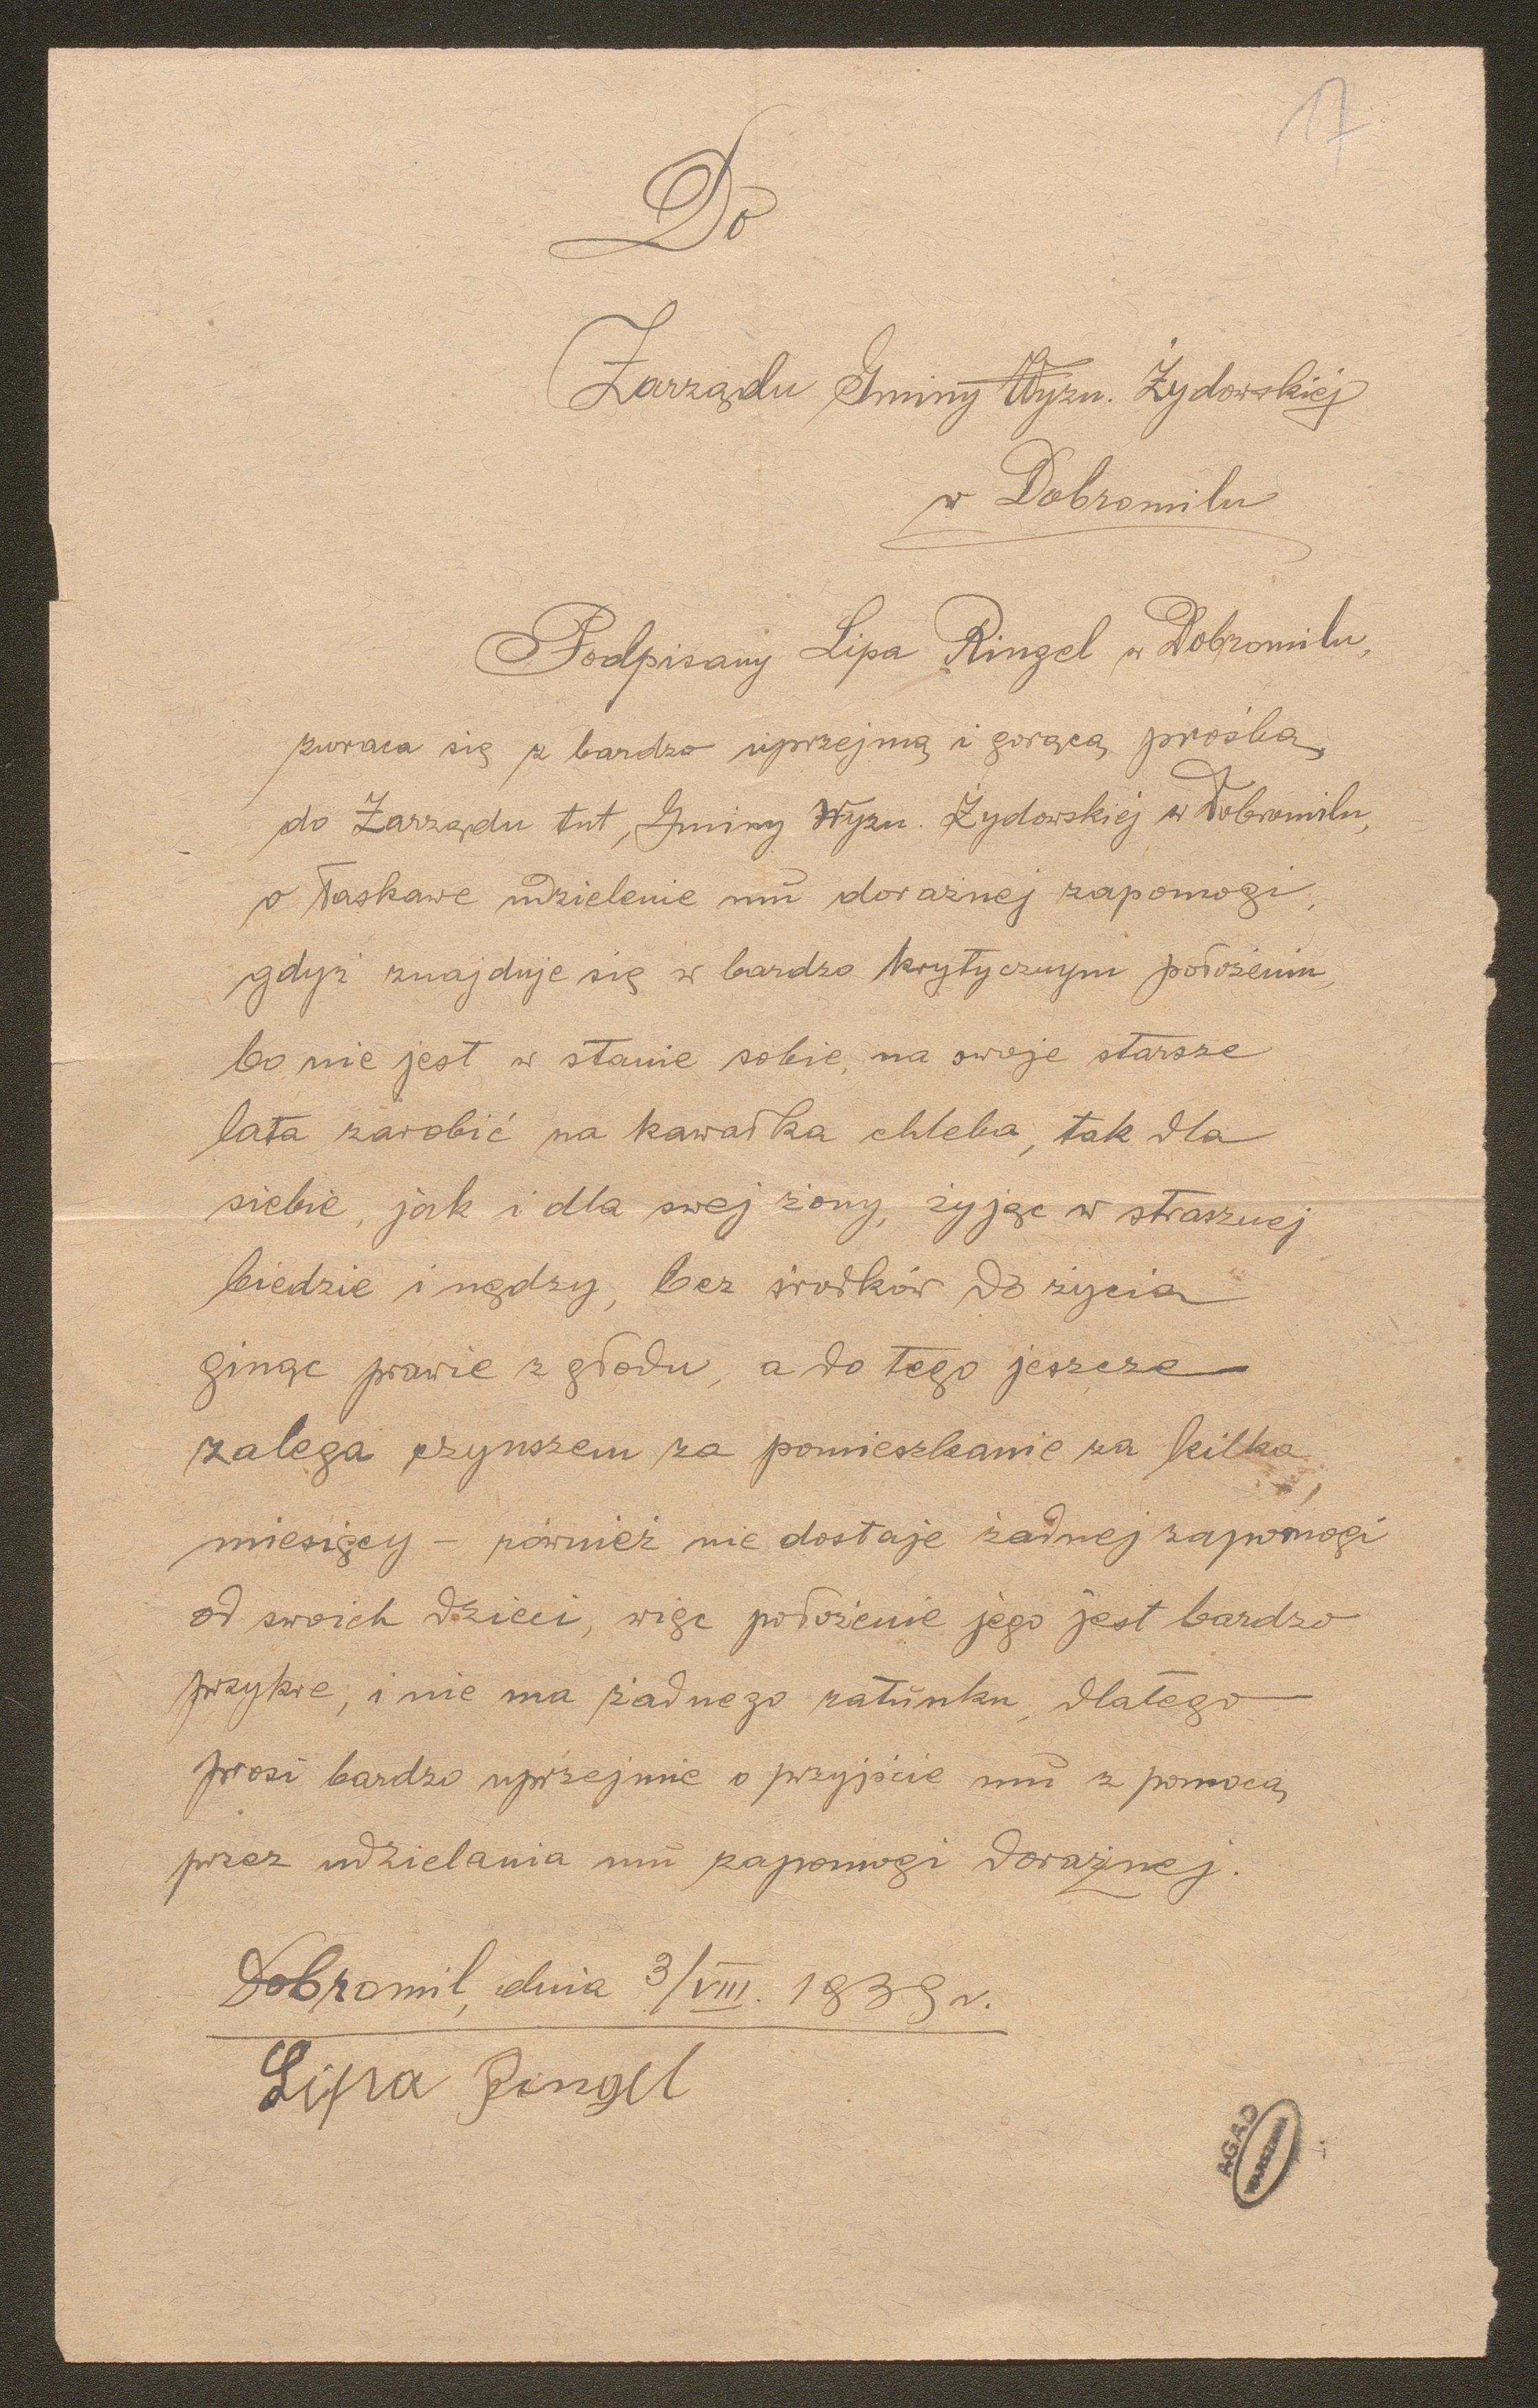 17
Do
Zarządu Gminy Wyzn. Żydowskiej
w Dobromilu
Podpisany Lipa Ringel w Dobromilu,
zwraca się z bardzo uprzejmą i gorącą prośbą,
do Zarządu tut, Gminy Wyzn. Żydowskiej w Dobromilu,
o łaskawe udzielenie mu doraźnej zapomogi,
gdyż znajduje się w bardzo krytycznym położeniu,
bo nie jest w stanie sobie, na swoje starsze
lata zarobić na kawałka chleba, tak dla
siebie, jak i dla swej żony, żyjąc w strasznej
biedzie i nędzy, bez środków do życia
ginąc prawie z głodu, a do tego jeszcze
zalega czynszem za pomieszkanie za kilka
miesięcy – również nie dostaje żadnej zapomogi
od swoich dzieci, więc położenie jego jest bardzo
przykre, i nie ma żadnego ratunku, dlatego
prosi bardzo uprzejmie o przyjście mu z pomocą,
przez udzielania mu zapomogi doraźnej.
Dobromil, dnia 3/VIII. 1939 r.
Lipa Ringel
AGAD
WARSZAWA